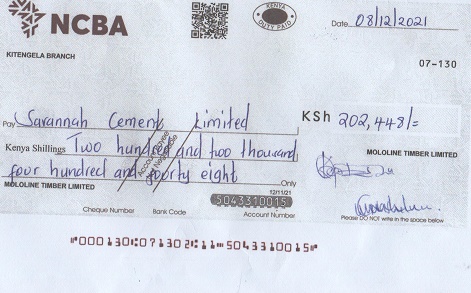 NCBA
KENYA
DUTY PAID
Date 08/12/2021
KITENGELA BRANCH
07-130
Pay Savannah Cement Limited
KSh 202,448/=
Kenya Shillings Two hundred and two thousand
four hundred and fourty eight Only
Account Payee
Not Negotiable
MOLOLINE TIMBER LIMITED
MOLOLINE TIMBER LIMITED
12/11/21
5043310015
Cheque Number Bank Code Account Number
Please DO NOT write in the space below
"000130:07130 2:11=5043310015"